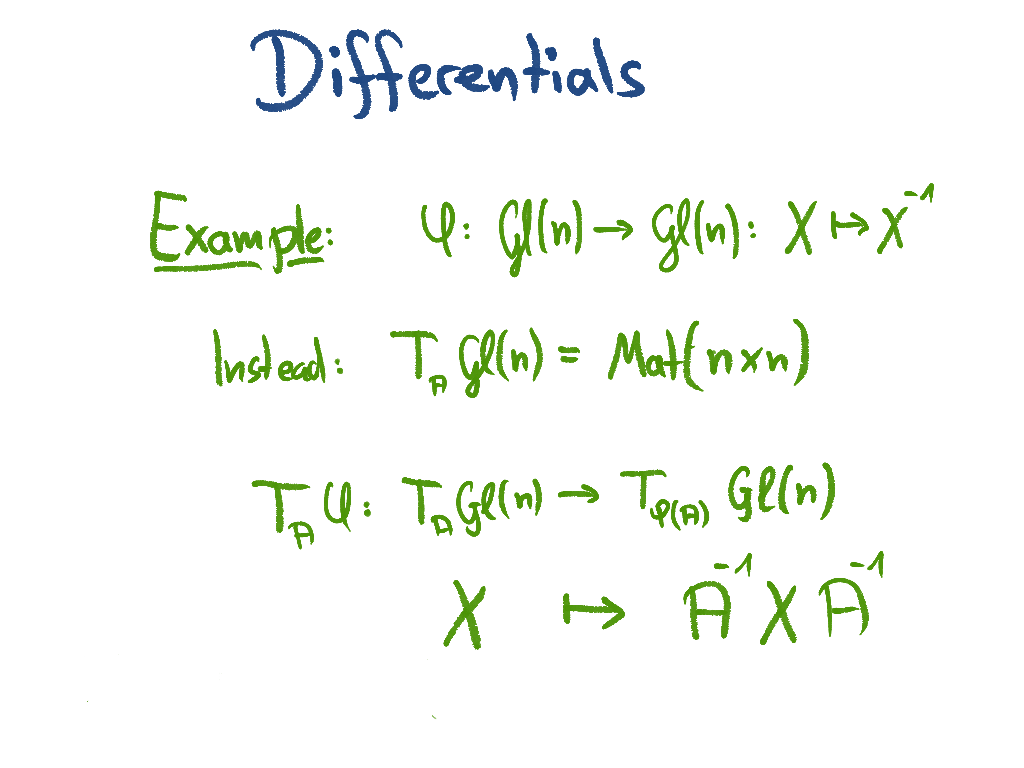 Differentials
Example: φ: Gl(n) → Gl(n): X ↦ X⁻¹
Instead: T_A Gl(n) = Mat(n×n)
T_A φ: T_A Gl(n) → T_φ(A) Gl(n)
X ↦ A⁻¹ X A⁻¹